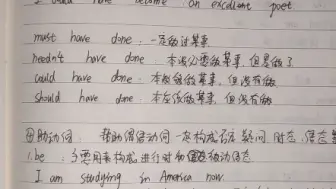 become an excellent poet
must have done: 一定做过某事
needn't have done: 本没必要做某事,但是做了
could have done: 本能够做某事,但没有做
should have done: 本应该做某事,但没有做
④助动词: 帮助 动词一起构成 疑问,时态,语态
1.be: 主要用来构成进行时和被动语态
I am studying in America now.